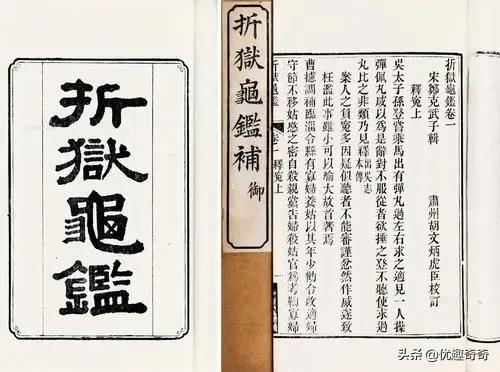 折獄龜鑑
折獄龜鑑補
御
折獄龜鑑卷一
宋鄭克武子輯 肅州胡文炳虎臣校訂
釋冤上
吳太子孫登嘗乘馬出有彈丸過左右求之適見一人操
彈佩丸咸以爲是辭對不服從者欲捶之登不聽使求過
丸比之非類乃見釋出吳志本傳
案人之負冤多因疑似聽者不能審謹忿然作威遂致
枉濫此事雖小可以喻大故首著焉
曹攄調補臨淄令縣有寡婦養姑以其年少勸令改適婦
守節不移姑愍之密自殺親黨告婦殺姑官爲考鞫寡婦
折獄龜鑑 卷一 釋冤上 一
头条 @优趣奇奇